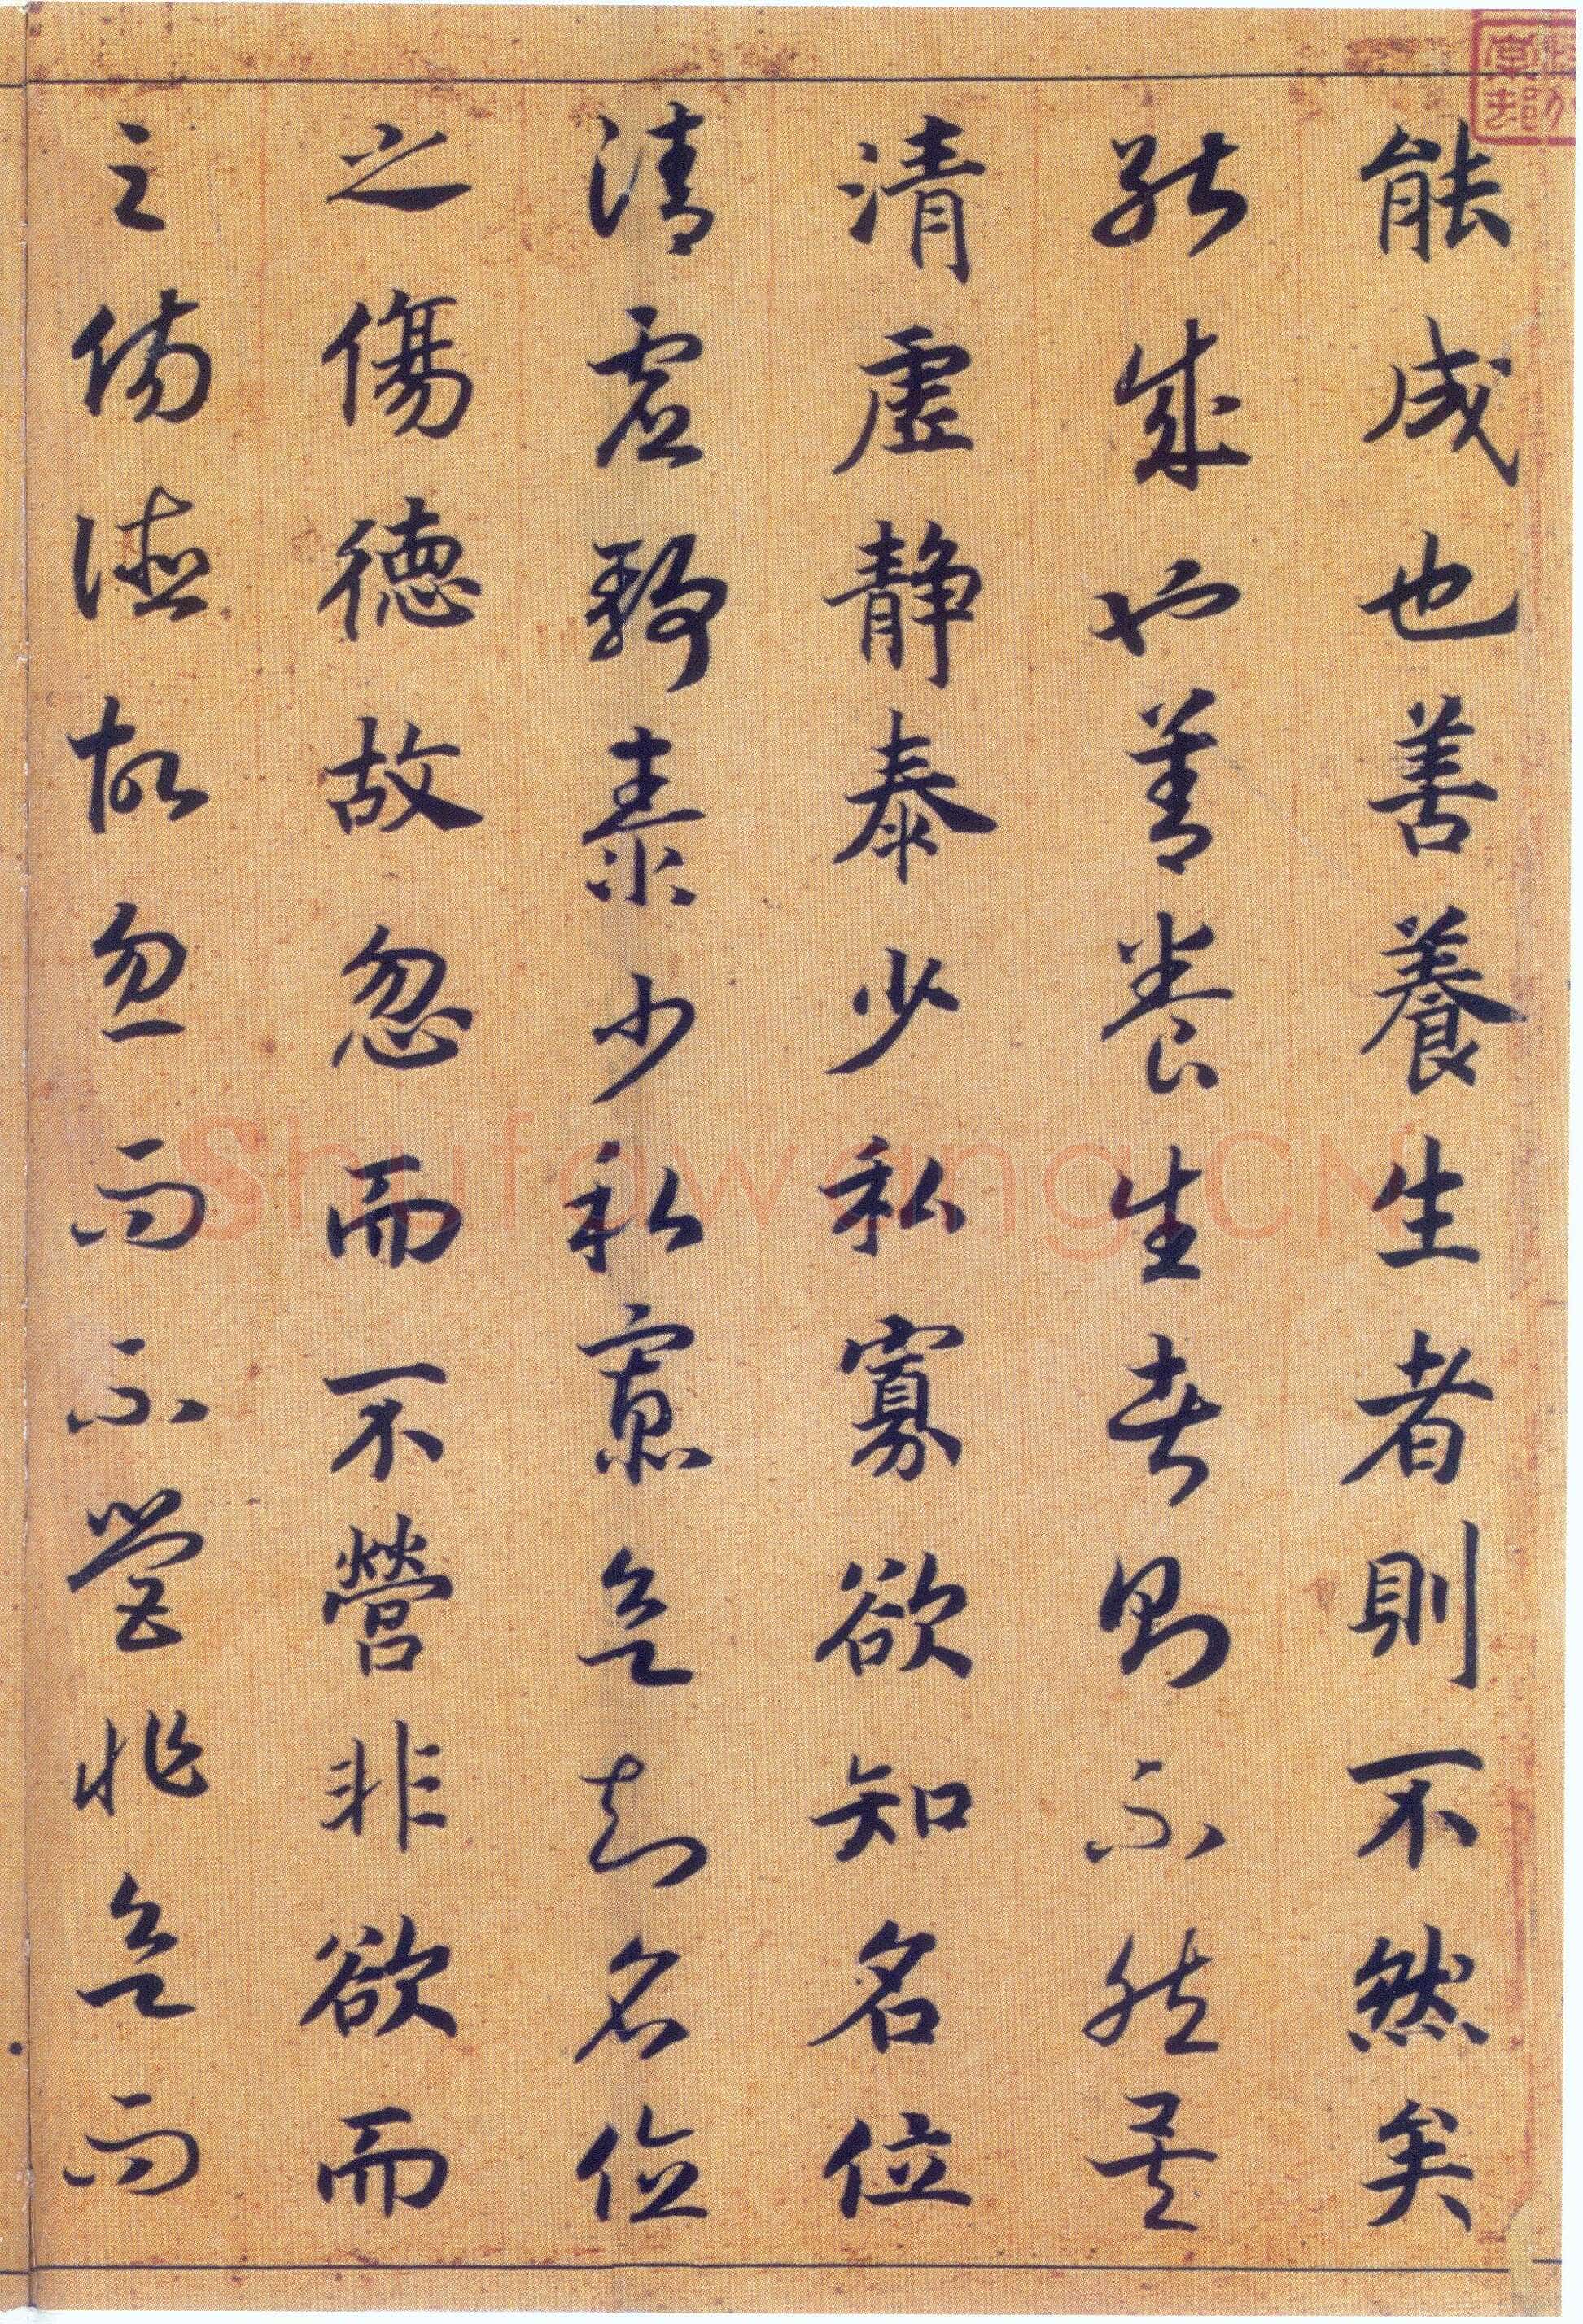 能成也善養生者則不然矣
能成也善養生者則不然矣
清虛靜泰少私寡欲知名位
清虛靜泰少私寡欲知名位
之傷德故忽而不營非欲而
之傷德故忽而不營非欲而
Shufawang.CN